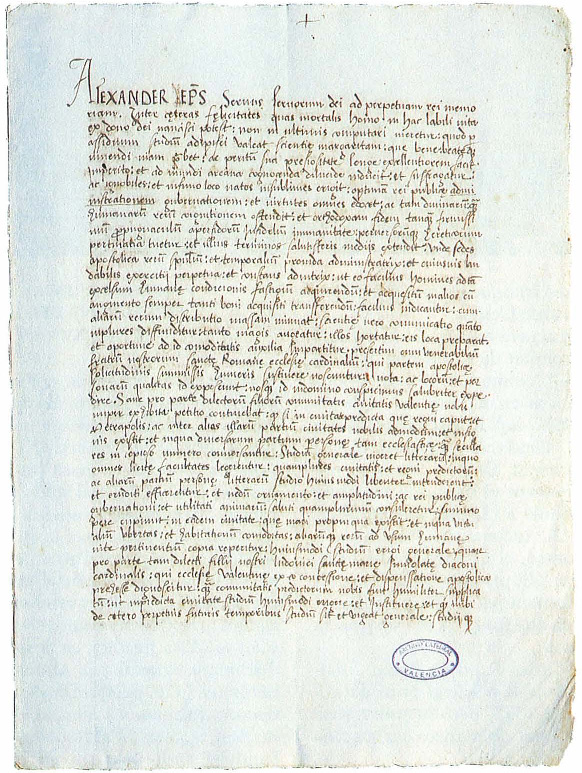 +
ALEXANDER EPS Servus servorum dei ad perpetuam rei memo
riam. Inter ceteras felicitates quas mortalis homo in hac labili vita
ex dono dei nancisci potest: non in ultimis computari meretur: quod per
assiduum studium adipisci valeat scientie margaritam: que bene beateque
vivendi viam prebet: ac peritum sua preciositate longe excellentiorem facit
imperito: et ad mundi arcana cognoscenda dilucide inducit: et suffragatur
ac ignobiles: et infimo loco natos in sublimes erigit: optimum rei publice admi
nistrationem gubernationem: et virtutes omnes docet: ac tam divinarum quam
humanarum rerum cognitionem ostendit: et orthodoxam fidem
propugnaculum
pertinatia tuetur: et illius terminos extendit: Unde sedes
apostolica rerum spualium: et temporalium provida administratrix: et cuiusvis lau
dabilis exercitii perpetua: et constans adiutrix: ut eo facilius homines ad tam
excelsum humane condicionis fastigium acquirendum: et acquesitum in alios cum
augmento semper tanti boni acquisiti transferendum: facilius inducantur: cum
aliarum rerum distributio massam minuat: scientie vero comunicatio quanto
in plures diffunditur: tanto magis augeatur: illos hortatur: eis loca preparat:
et oportune ad id comoditatis auxilia impartitur: presertim cum venerabilium
fratrum nostrorum sancte Romane ecclesie cardinalium: qui partem apostolice
solicitudinis humeris sustinere noscuntur vota: ac locorum: et per
sonarum qualitas id exposcunt: nosque id in domino conspicimus salubriter expe
dire. Sane pro parte dilectorum filiorum universitatis civitatis Valentie nobis
nuper exhibita petitio continebat: quod si in civitate predicta que regni caput: et
metropolis: ac inter alias illarum partium civitates nobilis admodum: et insig
nis existit: et in qua diversarum partium persone tam ecclesiastice: quam secula
res in copioso numero conversantur: Studium generale vigeret litterarum: in quo
omnes licite facultates legerentur: quamplures civitatis: et regni predictorum:
ac aliarum partium persone litterarum studio huiusmodi libenter intenderent:
et eruditi efficerentur: et nedum ornamento: et amplitudini: ac rei publice
gubernationi: et utilitati animarum saluti quamplurimum consuleretur: summo
pere cupiunt: in eadem civitate: que mari propinqua existit: et in qua victu
alium ubertas: et habitationum comoditas: aliarumque rerum ad usum humane
vite pertinentium copia reperitur: huiusmodi studium erigi generale: quare
pro parte tam dilecti filii nostri ludovici sancte marie Inviolate diaconi
cardinalis: qui ecclesie Valentine ex concessione: et dispensatione apostolica
preesse dignoscitur: quam comunitatis predictorum nobis fuit humiliter supplica
tum: ut in predicta civitate studium huiusmodi erigere: et instituere: et quod inibi
de cetero perpetuis futuris temporibus studium sit et vigeat generale: studii que
ARCHIVO CATEDRAL
VALENCIA